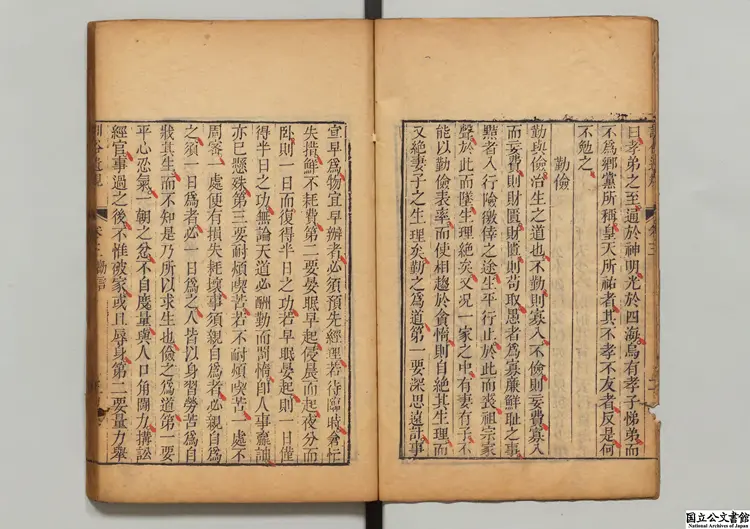 曰孝弟之至通於神明光於四海烏有孝子悌弟而
不爲鄉黨所稱皇天所祐者其不孝不友者反是何
不勉之
勤儉
勤與儉治生之道也不勤則寡入不儉則妄費寡入
而妄費則財匱財匱則苟取愚者爲寡廉鮮耻之事
黠者入行險徼倖之途生平行止於此而喪祖宗家
聲於此而墜生理絶矣又况一家之中有妻有子不
能以勤儉表率而使相趨於貪惰則自絶其生理而
又絶妻子之生理矣勤之爲道第一要深思遠計事
宜早爲物宜早辦者必須預先經理若待臨時倉忙
失措鮮不耗費第二要晏眠早起侵晨而起夜分而
卧則一日而復得半日之功若早眠晏起則一日僅
得半日之功無論天道必酬勤而罰惰卽人事贏詘
亦已懸殊第三要耐煩喫苦若不耐煩喫苦一處不
周密一處便有損失耗壞事須親自爲者必親自爲
之須一日爲者必一日爲之人皆以身習勞苦爲自
戕其生而不知是乃所以求生也儉之爲道第一要
平心忍氣一朝之忿不自度量與人口角鬬力搆訟
經官事過之後不惟破家或且辱身第二要量力舉
訓俗遺規
卷三
國立公文書館
National Archives of Japan